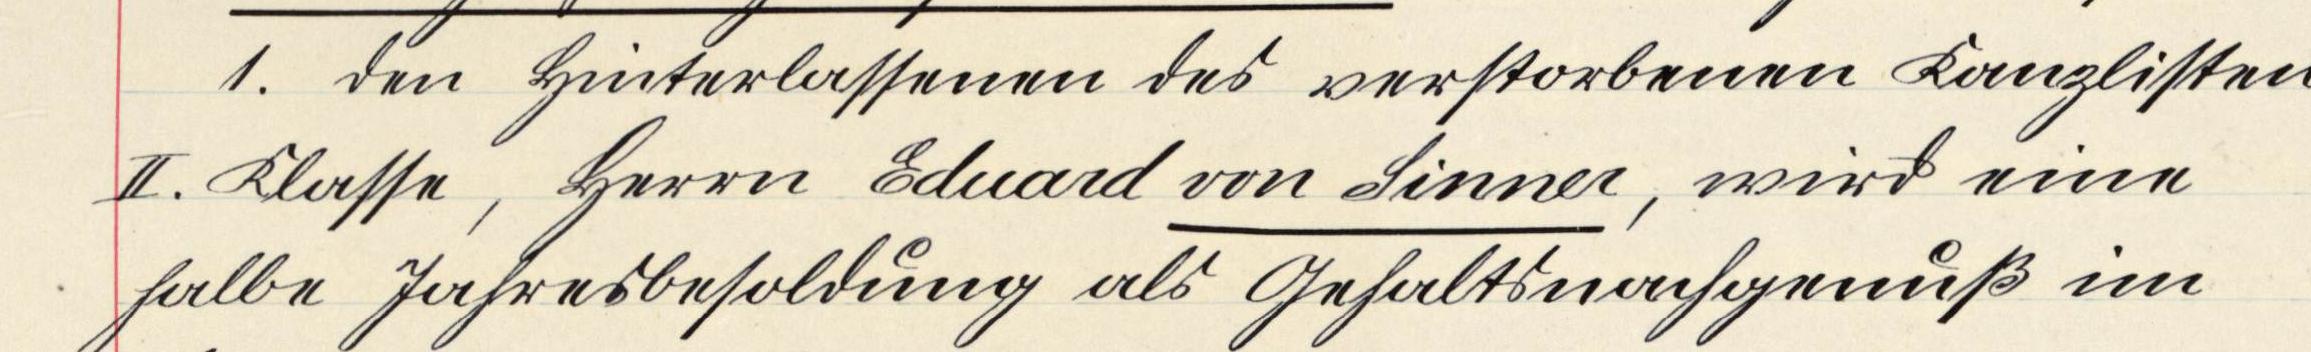 1. den Hinterlassenen des verstorbenen Kanzlisten
II. Klasse, Herrn Eduard von Sinner, wird eine
halbe Jahresbesoldung als Gehaltsnachgenuß im